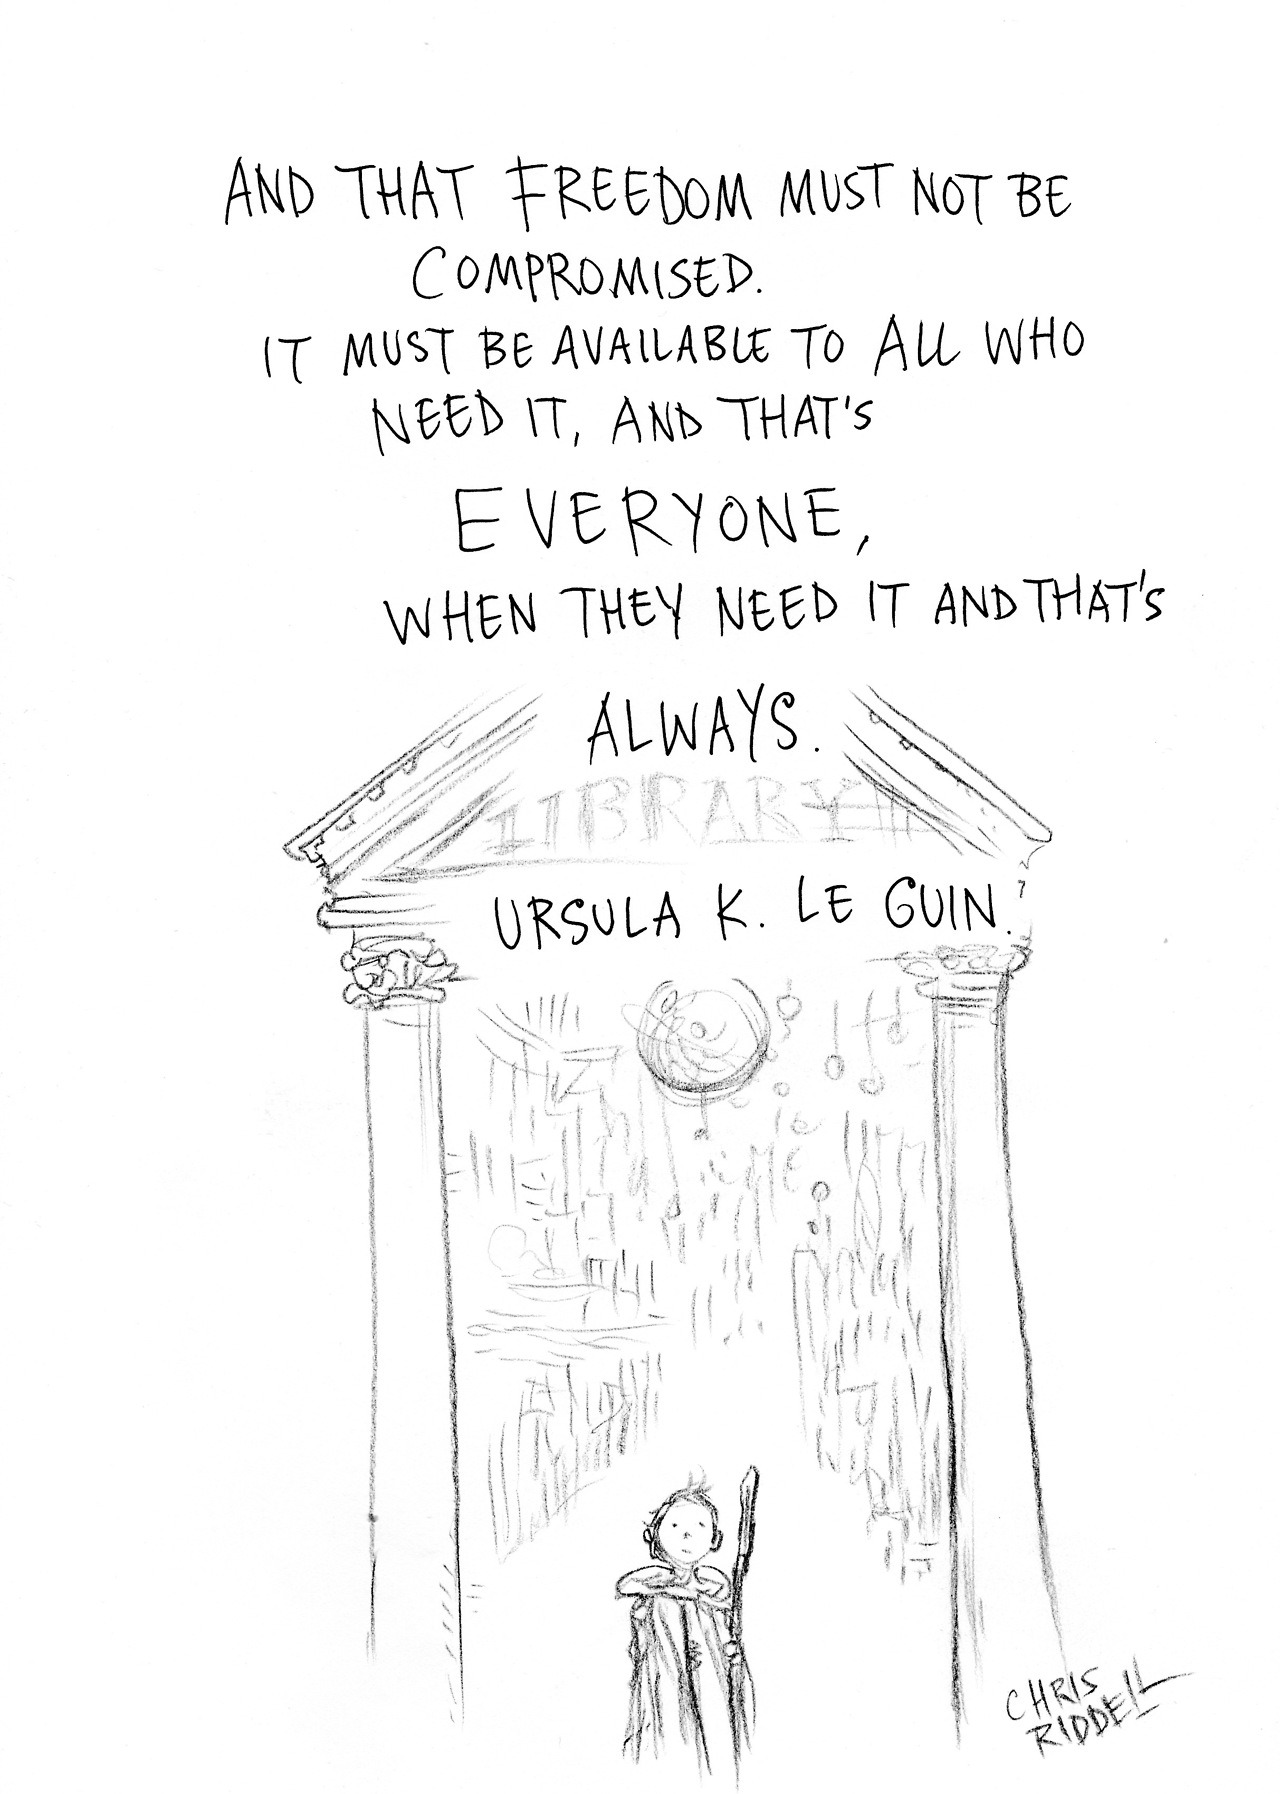 AND THAT FREEDOM MUST NOT BE
COMPROMISED.
IT MUST BE AVAILABLE TO ALL WHO
NEED IT, AND THAT'S
EVERYONE,
WHEN THEY NEED IT AND THAT'S
ALWAYS.
LIBRARY
URSULA K. LE GUIN.
CHRIS
RIDDELL